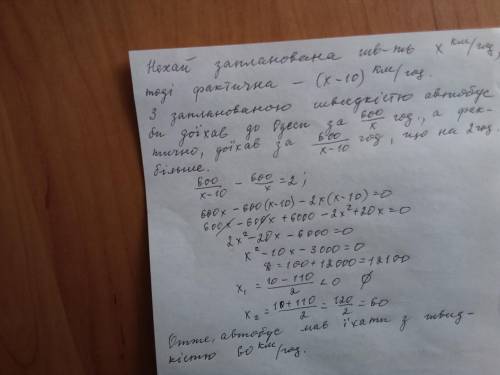 Нехай запланована шв-ть x км/год,
тоді фактична – (x-10) км/год.
З запланованою швидкістю автобус
би доїхав до Одеси за 600/x год., а фак-
тично, доїхав за 600/x-10 год, що на 2 год
більше.
600/x-10 - 600/x = 2;
600x - 600(x-10) - 2x(x-10)=0
600x - 600x + 6000 - 2x²+20x=0
2x²-20x-6000=0
x²-10x-3000=0
D=100+12000=12100
x₁ = 10-110/2 < 0 ∅
x₂ = 10+110/2 = 120/2 = 60
Отже, автобус мав їхати з швид-
кістю 60 км/год.